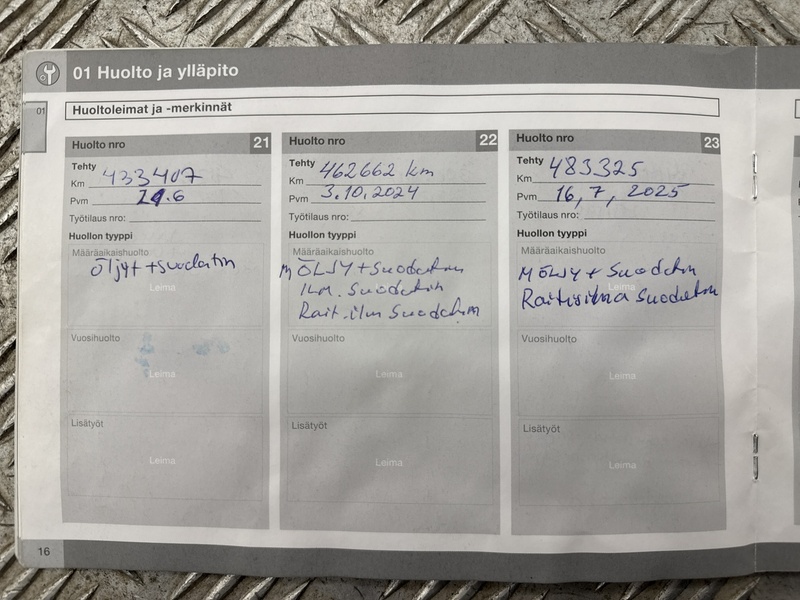 01 Huolto ja ylläpito
01
Huoltoleimat ja -merkinnät
Huolto nro 21
Tehty
Km 433407
Pvm 21.6
Työtilaus nro:
Huollon tyyppi
Määräaikaishuolto
Öljyt + suodatin
Leima
Vuosihuolto
Leima
Lisätyöt
Leima
Huolto nro 22
Tehty
Km 462662 km
Pvm 3.10.2024
Työtilaus nro:
Huollon tyyppi
Määräaikaishuolto
MÖLJY + Suodatin
ILM. Suodatin
Rait.ilm Suodatin
Vuosihuolto
Leima
Lisätyöt
Leima
Huolto nro 23
Tehty
Km 483325
Pvm 16,7, 2025
Työtilaus nro:
Huollon tyyppi
Määräaikaishuolto
MÖLJY + Suodatin
Leima
Raitisilma Suodatin
Vuosihuolto
Leima
Lisätyöt
Leima
16